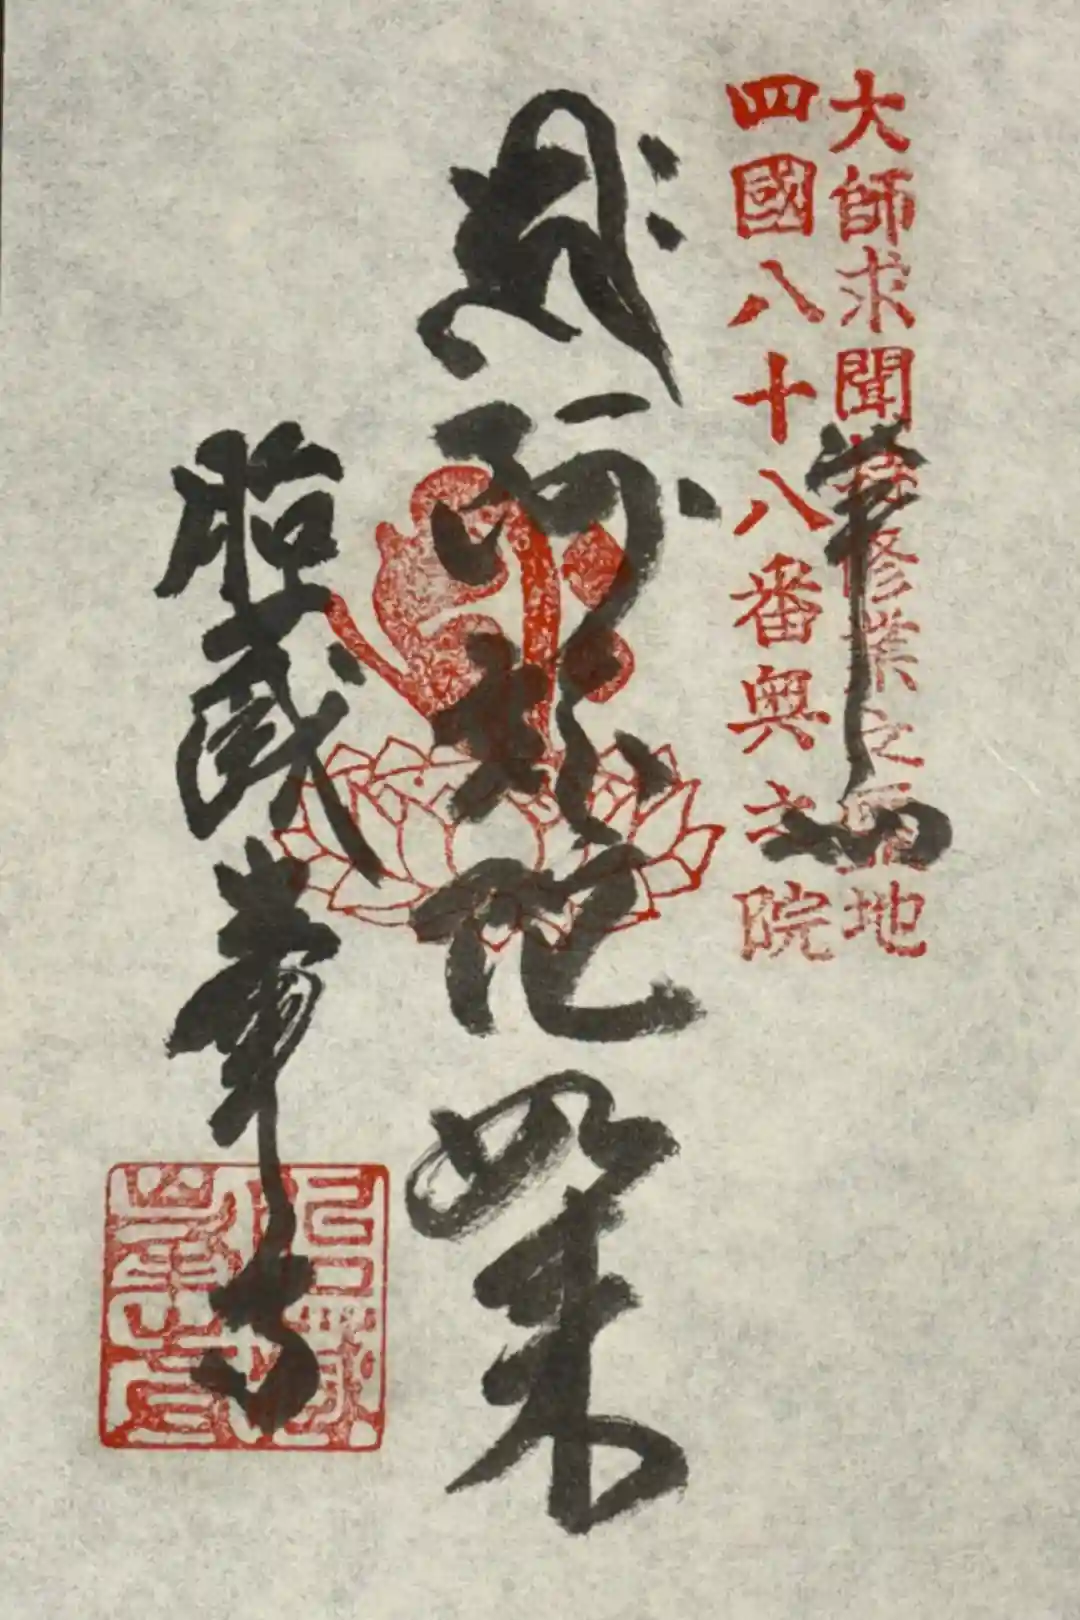 大師求聞持修業之霊地
四國八十八番奥之院
奉
阿弥陀如来
胎蔵峯寺